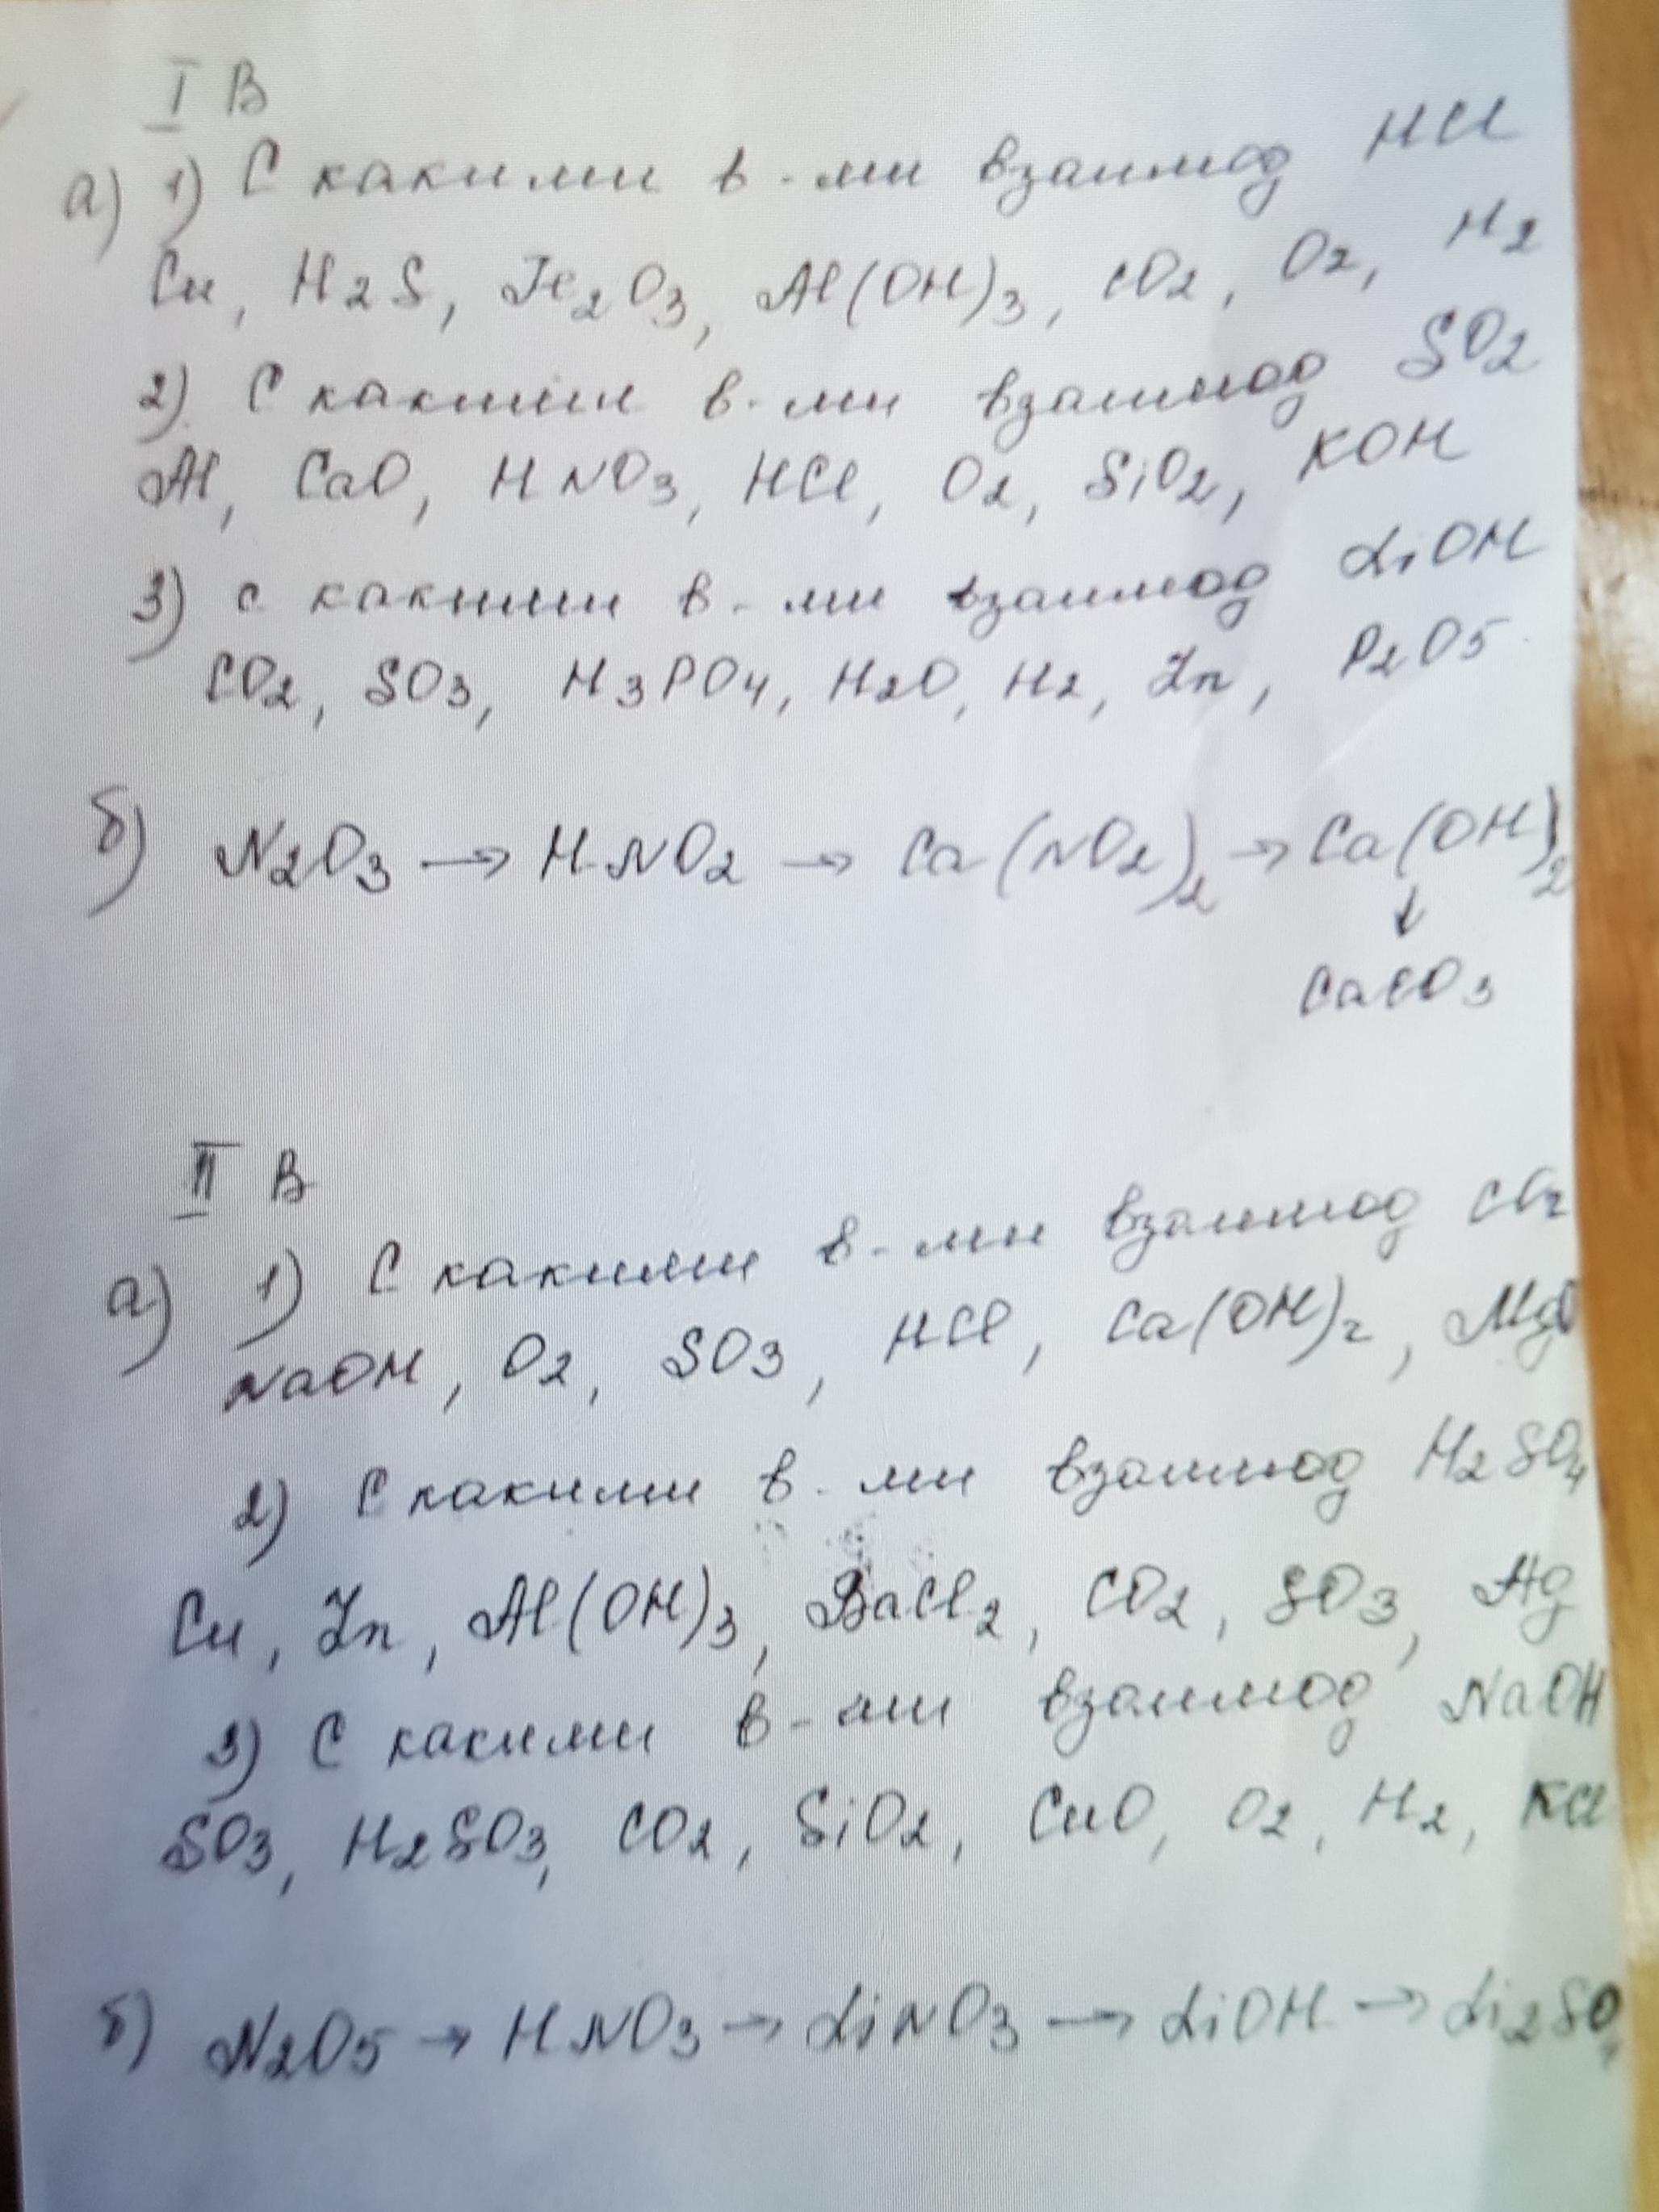 I В
а) 1) С какими в-ми взаимод HCl
Cu, H2S, Fe2O3, Al(OH)3, CO2, O2, H2
2) С какими в-ми взаимод SO2
Al, CaO, HNO3, HCl, O2, SiO2, KOH
3) с какими в-ми взаимод LiOH
CO2, SO3, H3PO4, H2O, H2, Zn, P2O5
б) N2O3 → HNO2 → Ca(NO2)2 → Ca(OH)2
↓
CaCO3
II В
а) 1) С какими в-ми взаимод
NaOH, O2, SO3, HCl, Ca(OH)2, MgO
2) С какими в-ми взаимод H2SO4
Cu, Zn, Al(OH)3, BaCl2, CO2, SO3, Ag
3) С какими в-ми взаимод NaOH
SO3, H2SO3, CO2, SiO2, CuO, O2, H2, KCl
б) N2O5 → HNO3 → LiNO3 → LiOH → Li2SO4